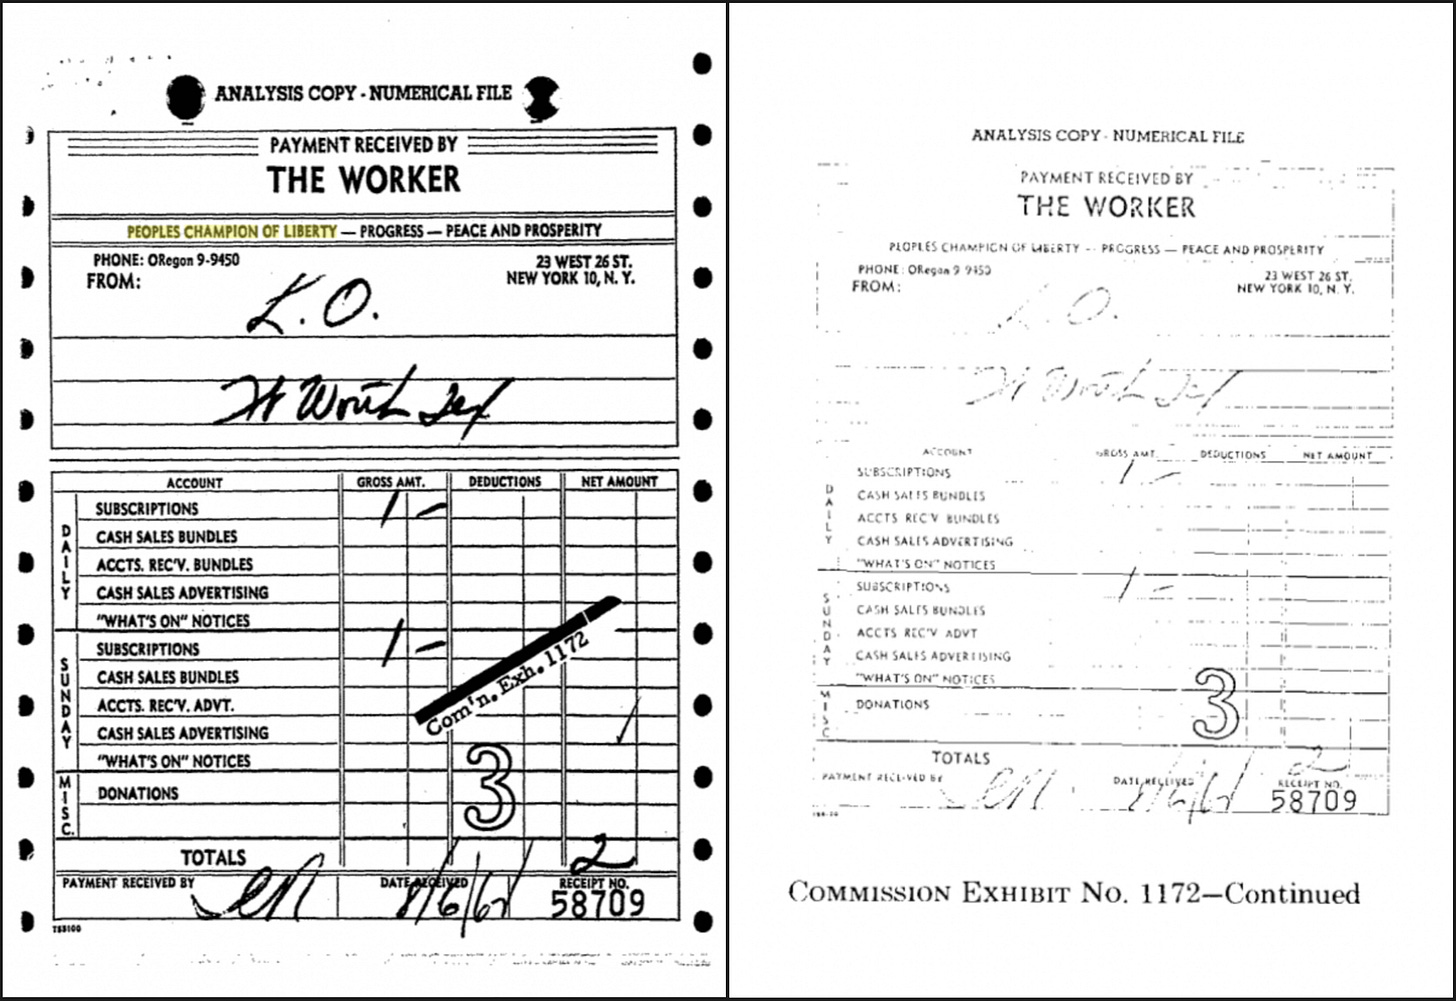 ANALYSIS COPY - NUMERICAL FILE
PAYMENT RECEIVED BY
THE WORKER
PEOPLES CHAMPION OF LIBERTY — PROGRESS — PEACE AND PROSPERITY
PHONE: ORegon 9-9450
23 WEST 26 ST.
FROM:
NEW YORK 10, N. Y.
L. O.
Ft Worth Tex
ACCOUNT GROSS AMT. DEDUCTIONS NET AMOUNT
DAILY
SUBSCRIPTIONS 1 -
CASH SALES BUNDLES
ACCTS. REC'V. BUNDLES
CASH SALES ADVERTISING
"WHAT'S ON" NOTICES
SUNDAY
SUBSCRIPTIONS 1 -
CASH SALES BUNDLES
ACCTS. REC'V. ADVT.
CASH SALES ADVERTISING
"WHAT'S ON" NOTICES
Com'n. Exh. 1172
MISC.
DONATIONS
3
TOTALS 2
PAYMENT RECEIVED BY DATE RECEIVED RECEIPT NO.
8/6/62 58709
ANALYSIS COPY - NUMERICAL FILE
PAYMENT RECEIVED BY
THE WORKER
PEOPLES CHAMPION OF LIBERTY -- PROGRESS — PEACE AND PROSPERITY
PHONE: ORegon 9 9450
23 WEST 26 ST.
FROM:
NEW YORK 10, N. Y.
L. O.
Ft Worth Tex
ACCOUNT GROSS AMT. DEDUCTIONS NET AMOUNT
DAILY
SUBSCRIPTIONS 1 -
CASH SALES BUNDLES
ACCTS REC'V BUNDLES
CASH SALES ADVERTISING
"WHAT'S ON" NOTICES
SUNDAY
SUBSCRIPTIONS 1 -
CASH SALES BUNDLES
ACCTS REC'V ADVT
CASH SALES ADVERTISING
"WHAT'S ON" NOTICES
MISC
DONATIONS
3
TOTALS 2
PAYMENT RECEIVED BY DATE RECEIVED RECEIPT NO.
8/6/62 58709
COMMISSION EXHIBIT NO. 1172—Continued